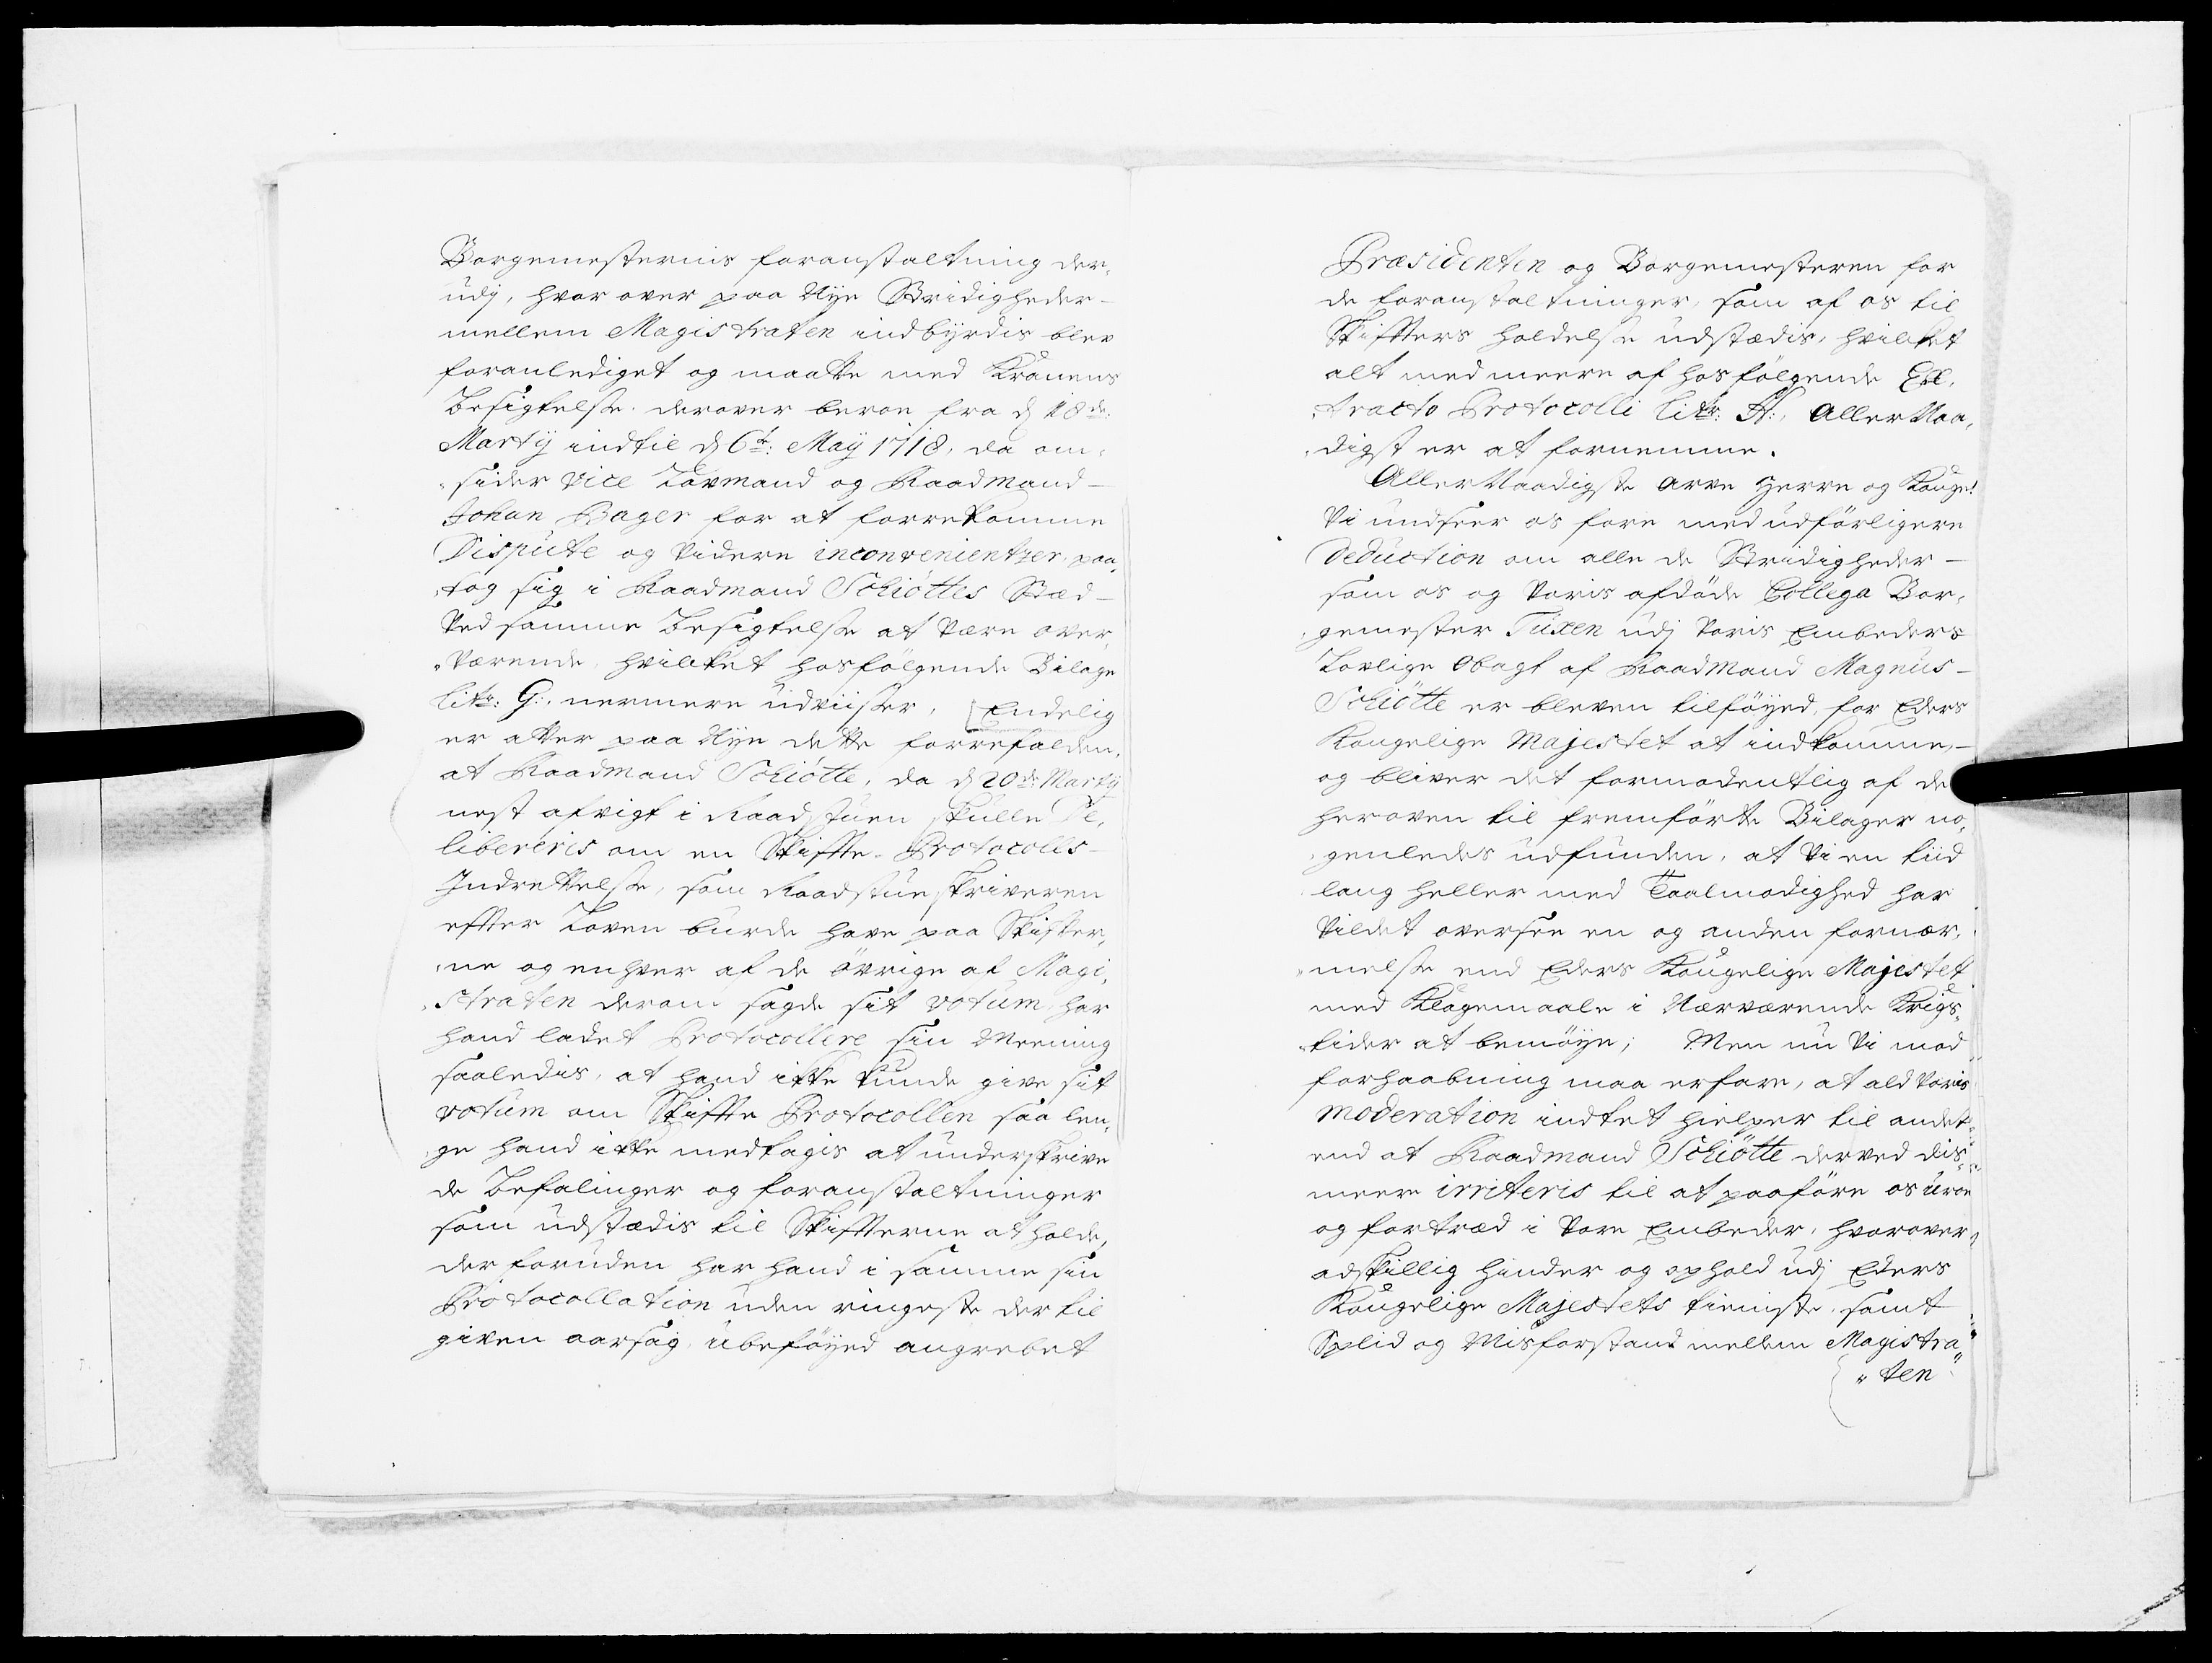 Borgemesternis foranstaltning der,
udj, hvor over paa Nÿe Stridigheder
mellem Magistraten indbÿrdis blev
foranlediget og maatte med Kranens
Besigtelse derover beroe fra d 18de:
Martÿ indtil d 6t: Maÿ 1718, da om,
sider Vice Lavmand og Raadmand
Johan Bager for at forrekomme
Dispute og Videre inconvenientzer, paa,
tog sig i Raadmand Schiöttes Stæd
Ved samme Besigtelse at Være over
Værende, hvilket hosfölgende Bilage
litr: G: nermere udviisser, Endelig
er atter paa Nÿe dette forrefalden,
at Raadmand Schiötte, da d 20de Martÿ
nest afvigt i Raadstuen skulle De,
libereris om en Skiffte-Protocolls
Indrettelse, som Raadstueskriveren
effter Loven burde have paa Skiffter,
ne og enhver af de övrige af Magi,
straten derom sagde sit votum, har
hand ladet Protocollere sin Meening
saaledis, at hand ikke kunde give sit
votum om Skiffte Protocollen saa len,
ge hand ikke medtagis at underskrive
de Befalinger og foranstaltninger
som udstædis til Skiffterne at holde,
der foruden har hand i samme sin
Protocollation uden ringeste der til
given aarsag, ubeföÿed angrebet
Præsidenten og Borgemesteren for
de foranstaltninger, som af os til
Skiffters holdelse udstædis, hvilket
alt med meere af hos fölgende Ex,
tracto Protocolli litr: H:, AllerNaa,
digst er at fornemme.
AllerNaadigste Arve Herre og Konge!
Vi undseer os fore med udförligere
Deduction om alle de Stridigheder
som os og Voris afdöde Collega Bor,
gemester Tuxen udj Voris Embeders
Lovlige Obagt af Raadmand Magnus
Schiötte er bleven tilföÿed, for Eders
Kongelige Majestet at indkomme,
og bliver det formodentlig af de
heroven til fremförte Bilager no,
genledes udfunden, at Vi en tiid
lang heller med Taalmodighed har
Vildet oversee en og anden fornær,
melse end Eders Kongelige Majestet
med Klagemaale i Nærværende Krigs,
tider at bemöÿe; Men nu Vi mod
forhaabning maa erfare, at ald Voris
moderation indtet hielper til andet
end at Raadmand Schiötte derved dis
meere irriteris til at paaföre os uroe
og fortræd i Vore Embeder, hvorover
adskillig hinder og ophold udj Eders
Kongelige Majestets tieniste, samt
Splid og Misforstand mellem Magistra
ten